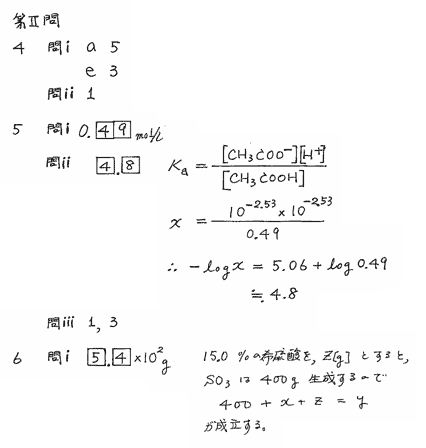 第Ⅱ問
4 問i a 5
e 3
問ii 1
5 問i 0.49 mol/L
問ii 4.8 Ka = [CH3COO-][H+] / [CH3COOH]
x = 10^-2.53 × 10^-2.53 / 0.49
∴ -log x = 5.06 + log 0.49
≒ 4.8
問iii 1, 3
6 問i 5.4 ×10^2 g 15.0 %の希硫酸を, Z[g] とすると,
SO3 は 400g 生成するので
400 + x + z = y
が成立する。